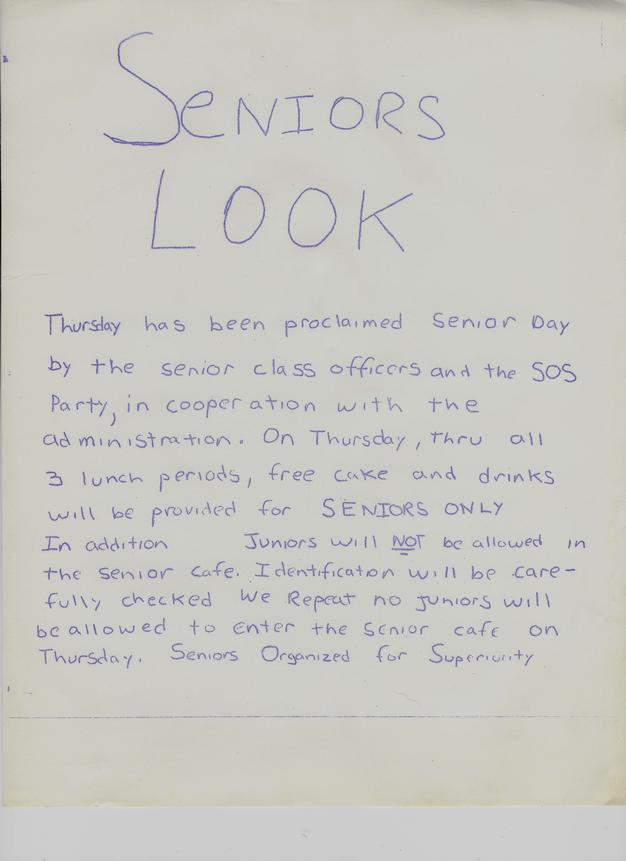 SENIORS
LOOK
Thursday has been proclaimed Senior Day
by the senior class officers and the SOS
Party, in cooperation with the
administration. On Thursday, thru all
3 lunch periods, free cake and drinks
will be provided for SENIORS ONLY
In addition Juniors will NOT be allowed in
the senior cafe. Identification will be care-
fully checked We Repeat no juniors will
be allowed to enter the senior cafe on
Thursday. Seniors Organized for Superiority